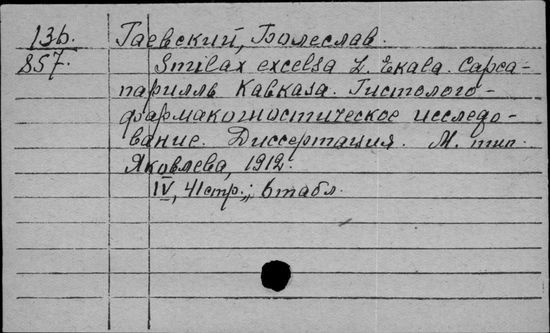 136. Гаевский, Болеслав.
857. Smilax excelsa L. Екала. Сарса-
парилль Кавказа. Гистолого-
фармакогностическое исследо-
вание. Диссертация. М. тип.
Яковлева, 1912.
IV, 41 стр.; 6 табл.